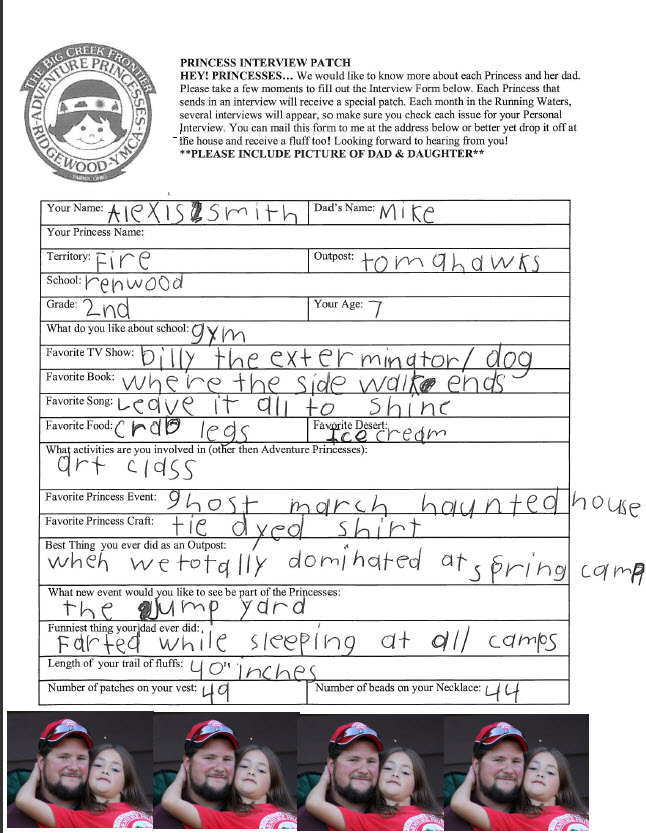 THE BIG CREEK FRONTIER
ADVENTURE PRINCESSES
RIDGEWOOD-YMCA
PARMA, OHIO
PRINCESS INTERVIEW PATCH
HEY! PRINCESSES… We would like to know more about each Princess and her dad.
Please take a few moments to fill out the Interview Form below. Each Princess that
sends in an interview will receive a special patch. Each month in the Running Waters,
several interviews will appear, so make sure you check each issue for your Personal
Interview. You can mail this form to me at the address below or better yet drop it off at
the house and receive a fluff too! Looking forward to hearing from you!
**PLEASE INCLUDE PICTURE OF DAD & DAUGHTER**
Your Name: Alexis Smith Dad's Name: Mike
Your Princess Name:
Territory: Fire Outpost: tomahawks
School: renwood
Grade: 2nd Your Age: 7
What do you like about school: gym
Favorite TV Show: billy the exterminator/dog
Favorite Book: where the side walk ends
Favorite Song: Leave it all to shine
Favorite Food: crab legs Favorite Desert: Ice cream
What activities are you involved in (other then Adventure Princesses):
art class
Favorite Princess Event: ghost march haunted house
Favorite Princess Craft: tie dyed shirt
Best Thing you ever did as an Outpost:
when we totally dominated at spring camp
What new event would you like to see be part of the Princesses:
the Jump yard
Funniest thing your dad ever did:
Farted while sleeping at all camps
Length of your trail of fluffs: 40" inches
Number of patches on your vest: 49 Number of beads on your Necklace: 44